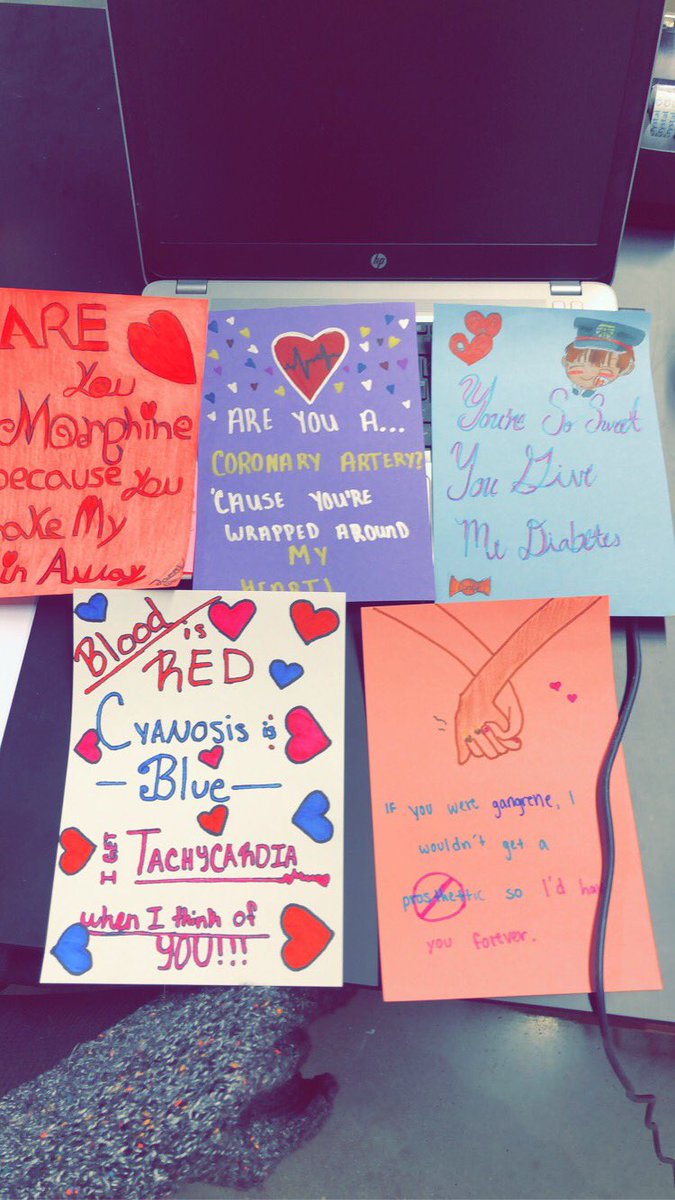 hp
ARE
You
Morphine
because You
ake My
in Away
ARE YOU A...
CORONARY ARTERY?
'CAUSE YOU'RE
WRAPPED AROUND
MY
HEART!
You're So Sweet
You Give
Me Diabetes
Blood is
RED
CYANOSIS is
-Blue-
I GET TACHYCARDIA
when I think of
YOU!!!
IF you were gangrene, I
wouldn't get a
prosthetic so I'd hav
you forever.